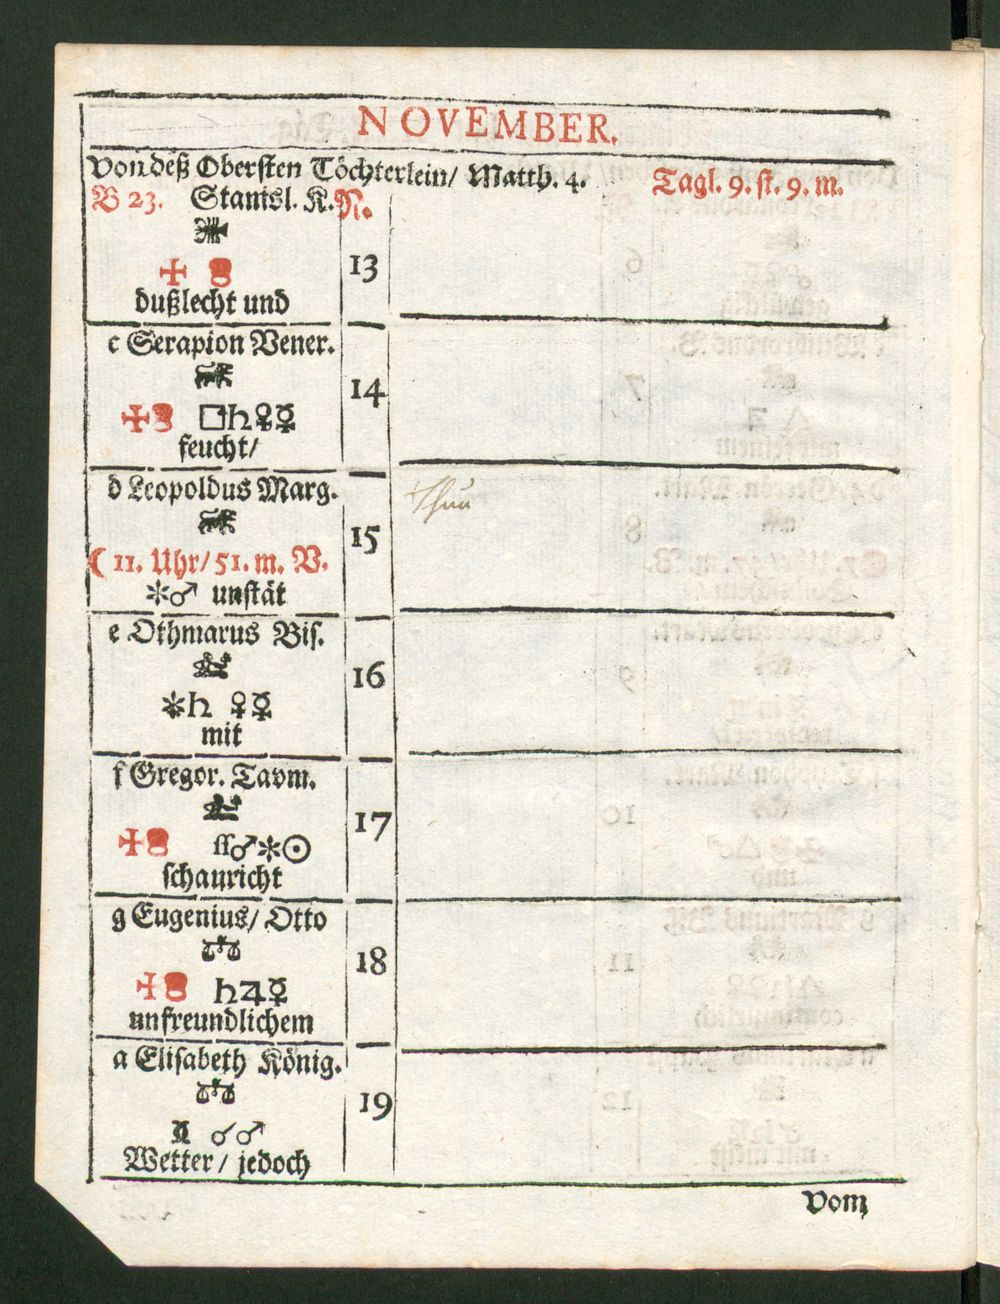 NOVEMBER.
Von deß Obersten Töchterlein/ Matth. 4.
Tagl. 9. st. 9. m.
B 23. Stanisl. K. N.
13
dußlecht und
c Serapion Vener.
14
□♄♀☿
feucht/
d Leopoldus Marg.
15
☾ 11. Uhr/ 51. m. V.
✻♂ unstät
e Othmarus Bis.
16
✻♄ ♀☿
mit
f Gregor. Tavm.
17
♂✻☉
schauricht
g Eugenius/ Otto
18
♄♃☿
unfreundlichem
a Elisabeth König.
19
☌♂
Wetter/ jedoch
Vom